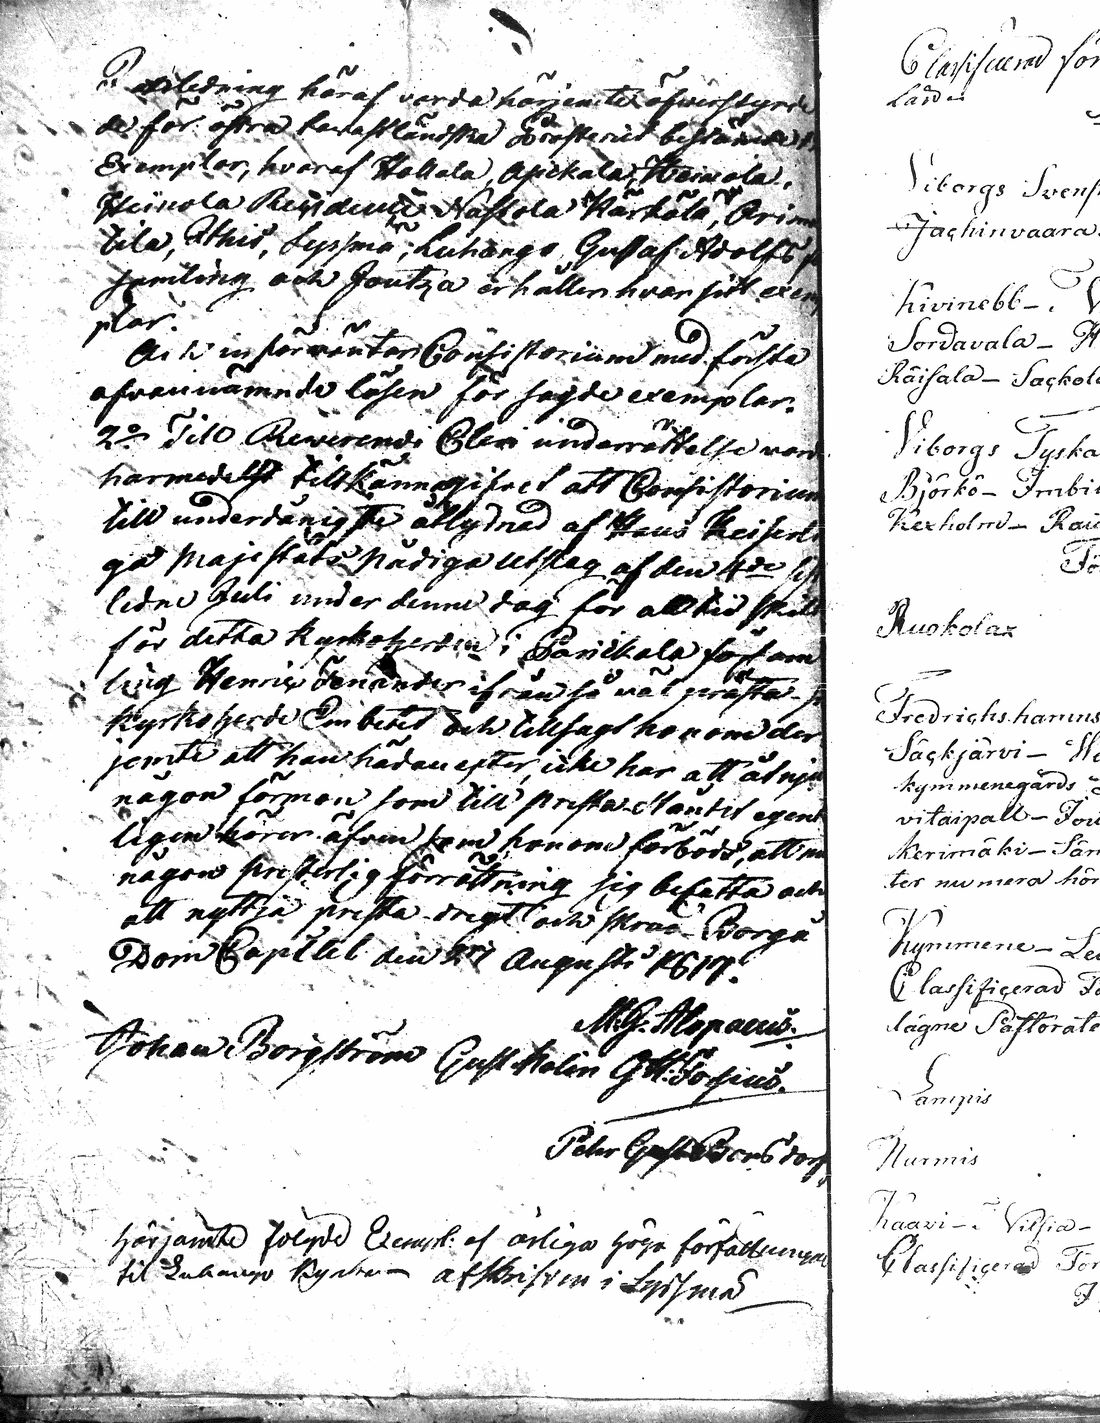 anledning häraf varda härjemte öfversände
de för östra Tavastländska Prosteriet bestämde
Exemplar, hvaraf Hollola, Asikala, Heinola,
Heinola Residence Nastola Kärkölä, Orimat
tila, Ithis, Syssmä, Luhango, Gustaf Adolfs
samling och Joutza erhåller hvar sitt exem
plar.
Och införväntar Consistorium med första
ofvannämnde lösen för sagde exemplar.
2o Till Reverendi Cleri underrättelse vard
härmedelst tillkännagifvet att Consistorium
till underdånigste åtlydnad af Hans Keiserli
ga Majestäts Nådiga utslag af den 4de sist
ledne Juli under denne dag för alltid skildt
för detta Kyrkoherden i Parickala församl
ling Henric Fenander ifrån så väl presta- som
Kyrkoherde Embetet och tillsagt honom der
jemte att han hädanefter, icke har att åtnju
någon förmon som till presta-Ståndet egent
ligen hörer äfven som honom förböds, att med
någon presterlig förrättning sig befatta och
att nyttja presta-drägt och skrud. Borgå
Dom Capitel den 27 Augusti 1817.
M. G. Alopaeus.
Johan Borgström Gust. Molin G H: Forsius.
Petr Gust Bonsdorff
Härjämte följde Exempl: af årliga höga författningar
til Luhango Kyrka - afskrifven i Syssmä
Classificerad för
Lärde
Viborgs Svensk
Jackinvaara
Kivinebb - V
Sordavala - H
Räisala - Sackola
Viborgs Tyska
Björkö - Imbi
Kexholm - Rau
Fö
Ruokolax
Fredrichshamns
Säckjärvi - We
Kymmenegårds
vitaipall - Jou
Kerimäki - Sär
ter numera hör
Kymmene - Le
Classificerad Fö
lägne Pastorate
Lampis
Nurmis
Kaavi - Vilsia -
Classificerad För